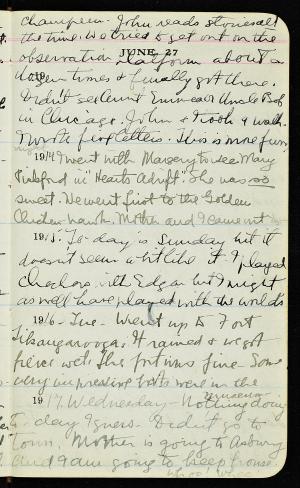 champion. John reads stories all
the time. We tried to get out on the
observation platform about a
JUNE, 27
dozen times & finally got there.
Didn't see Aunt Emma & Uncle Bob
in Chicago. John & I took a walk.
Wrote five letters. This is more fun.
1914 I went with Margery to see Mary
Pickford in "Hearts Adrift". She was so
sweet. We went first to the Golden
Chicken hawk. Mother and I came
1915. To-day is Sunday but it
doesn't seem a bit like it. I played
with Edgar but I might
as well have played with the world's
1916 - Tue - Went up to Fort
Ticonderoga. It rained & we got
fierce wet. The fort was fine - Some
very impressive boats were in the
museum
1917. Wednesday - Nothing doing
to-day I guess. Didn't go to
town. Mother is going to Asbury
and I am going to keep house